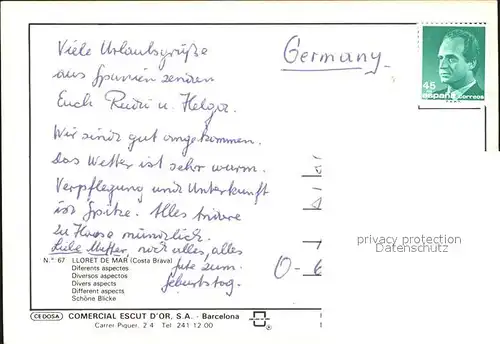 Viele Urlaubsgrüße
aus Spanien senden
Euch Rudi u. Helga.
Wir sind gut angekommen.
Das Wetter ist sehr warm.
Verpflegung und Unterkunft
ist Spitze. Alles andere
zu Hause mündlich.
Liebe Mutter, noch alles, alles
Gute zum
Geburtstag.
Germany
45
ESPAÑA correos
privacy protection
Datenschutz
O-6
N.° 67 LLORET DE MAR (Costa Brava)
Diferents aspectes
Diversos aspectos
Divers aspects
Different aspects
Schöne Blicke
CEDOSA
COMERCIAL ESCUT D'OR, S.A. - Barcelona
Carrer Piquer, 2 4 Tel 241 12 00